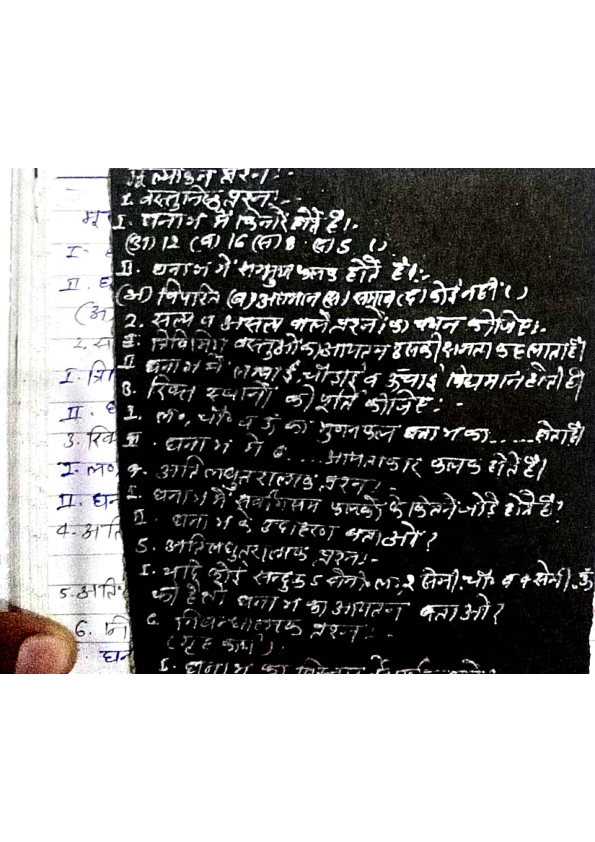 मूल्यांकन प्रश्न:-
I. वस्तुनिष्ठ प्रश्न:-
I. घनाभ में किनारे होते है।-
(अ) 12 (ब) 16 (स) 8 (द) 5 ( )
II. घनाभ में सम्मुख फलक होते है।:-
(अ) विपरित (ब) असमान (स) समान (द) कोई नहीं ( )
2. सत्य व असत्य वाले प्रश्नों का चयन कीजिए।-
I. त्रिविमिय वस्तुओं का आयतन उसकी क्षमता कहलाता है।
II. घनाभ में लम्बाई, चौड़ाई व ऊँचाई विद्यमान होती है।
3. रिक्त स्थानों की पूर्ति कीजिए:-
I. ल०, चौ० व ऊँ का गुणनफल घनाभ का ..... होता है।
II. घनाभ में 6 .... आयताकार फलक होते है।
4. अतिलघुतरात्मक प्रश्न:-
I. घनाभ में सर्वांगसम फलकों के कितने जोड़े होते है?
II. घनाभ के उदाहरण बताओ?
5. अतिलघुतरात्मक प्रश्न:-
I. यदि कोई सन्दुक 5 सेमी. ल., 2 सेमी. चौ. व 4 सेमी. ऊँ
की है तो घनाभ का आयतन बताओ?
6. निबन्धात्मक प्रश्न:-
(गृह कार्य)
I. घनाभ का
मू
I.
II. घ
(अ
2. स
I. त्रि
II.
3. रिक्
I. ल०
II. घन
4. अति
5. अति
6. नि
घन